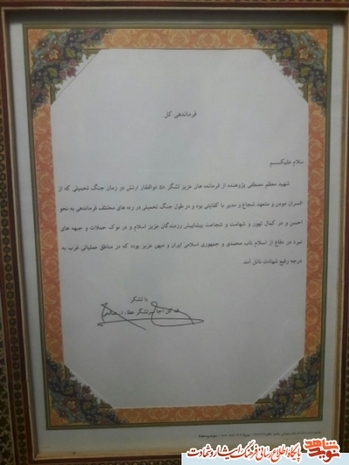 فرماندهی کل
سلام علیکم
شهید معظم مصطفی پژوهنده از فرمانده های عزیز لشگر ۵۸ ذوالفقار ارتش در زمان جنگ تحمیلی که از
افسران مومن و متعهد شجاع و مدیر با کفایتی بود و در طول جنگ تحمیلی در رده های مختلف فرماندهی به نحو
احسن و در کمال تهور و شهامت و شجاعت پیشاپیش رزمندگان عزیز اسلام و در نوک حملات و جبهه های
نبرد در دفاع از اسلام ناب محمدی و جمهوری اسلامی ایران و میهن عزیز بوده که در مناطق عملیاتی غرب به
درجه رفیع شهادت نائل آمد.
با تشکر
نوید شاهد پایگاه اطلاع رسانی فرهنگ ایثار و شهادت